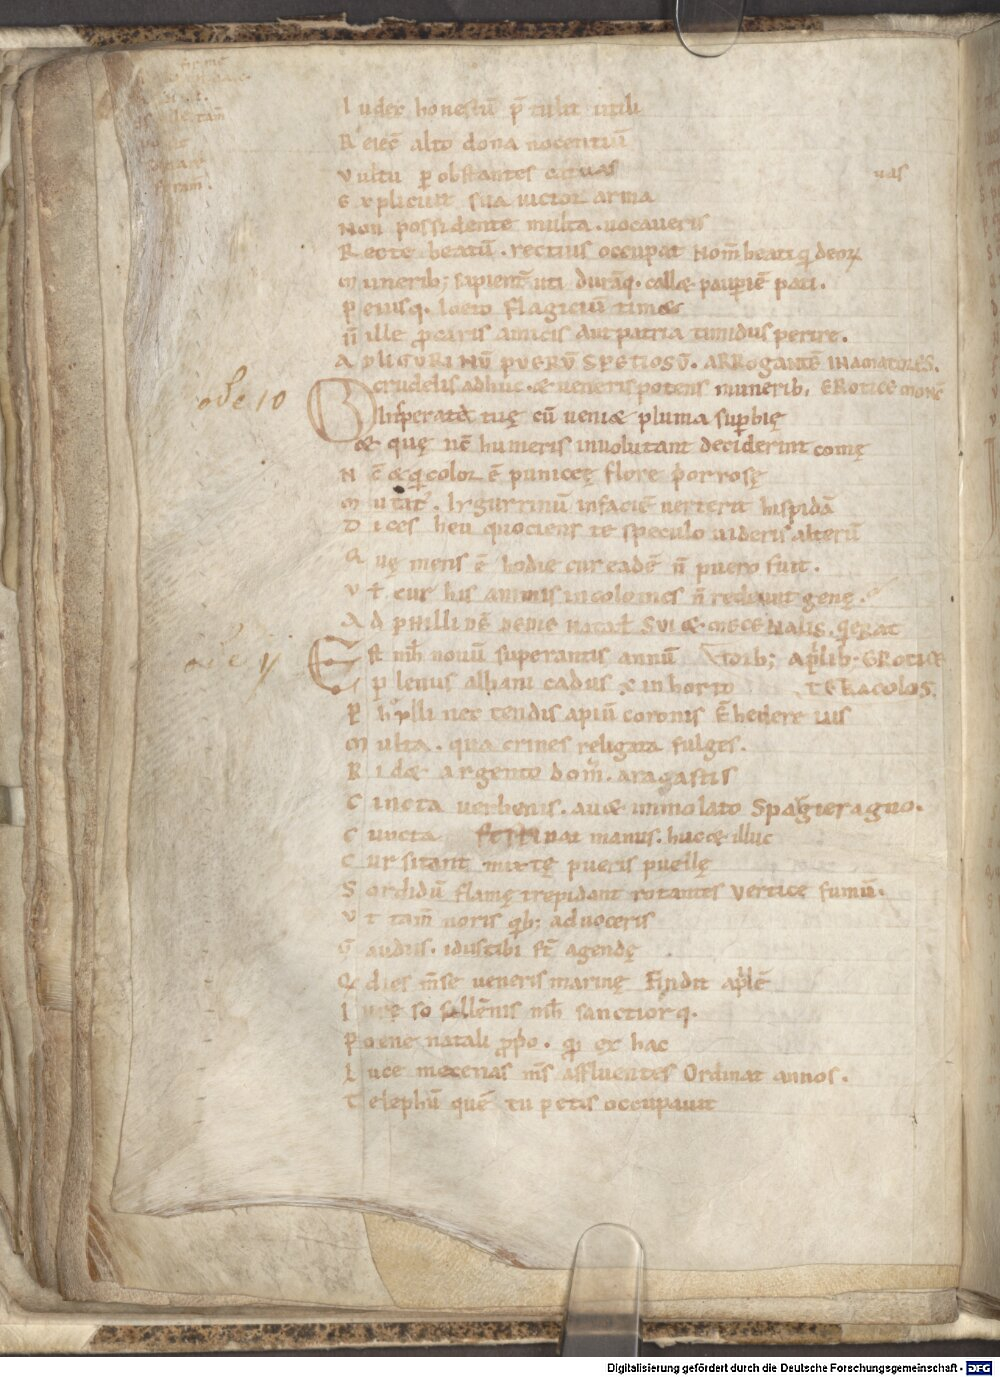 I udex honestū p̄tulit utili
R eiec̄ alto dona nocentiū
V ultu p obstantes catuas
E xplicuit sua uictor arma
Non possidente multa. uocaueris
R ecte beatū. rectius occupat Nom̄ beati q̇ deoꝝ
M unerib; sapient̄ uti durāq. callæ paupiē pati.
P eiusq. loeto flagiciū timæ
n̄ ille p̄caris amicis aut patria timidus perire.
A D LIGURINŪ PUERŪ SPETIOSŪ. ARROGANTĒ IN AMATORES.
ode 10
O crudelis adhuc. æ ueneris potens munerib, EROTICE
Insperata tuę cū ueniæ pluma supbię
æ quę nc̄ humeris inuolutant deciderint comę
N c̄ æ q̇ color ē punicęę flore p̄or rosę
M utat'. lygurrinū in faciē uerterit hispidā
D ices heu quociens te speculo uideris alterū
Q uę mens ē hodie cur eadē n̄ puero fuit.
V ł cur his animis incolomes n̄ redeunt genę.
A D PHILLIDĒ DE DIE NATAL SUI æ MECENATIS. q̇ ERAT
ode 11
E st mh̄ nouū superantis annū torib; APLIB; EROTICE
p lenus albani cadus ē in horto TETRACOLOS.
P hylli nec tendis apiū coronis Ē hedere uis
M ulta. qua crines religata fulges.
R idæ argento dom̄. ara gastis
C incta uerbenis. auæ immolato Spargier agno.
C uncta festinat manus. huc æ illuc
C ursitant mixtę pueris puellę
S ordidū flamę trepidant rotantes vertice fumū.
V t tam̄ noris q̇b; aduoceris
G audiis. idus tibi st̄ agendę
Q dies m̄se ueneris marinę Findit aplē
I ure so sollēnis mh̄ sanctiorq.
P oene natali p̄p̄o. q̇ ex hac
L uce mecenas m̄s affluentes Ordinat annos.
T elephū quē tu petis occupauit
Digitalisierung gefördert durch die Deutsche Forschungsgemeinschaft - DFG